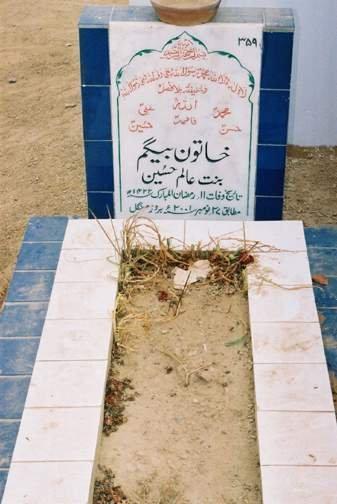 ۳۵۹
بسم اللہ الرحمن الرحیم
لا الہ الا اللہ محمد رسول اللہ علی ولی اللہ وصی رسول اللہ
و خلیفتہ بلا فصل
محمد اللہ علی
حسن فاطمہ حسین
خاتون بیگم
بنت عالم حسین
تاریخ وفات ۱۱ رمضان المبارک ۱۴۲۲ھ
مطابق ۲۷ نومبر ۲۰۰۱ء بروز منگل